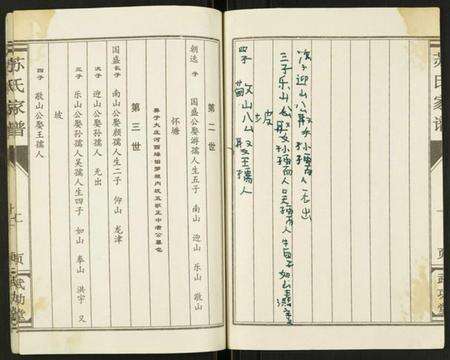 苏氏家谱 页 武功堂
次子 迎山公娶孙孺人 无出
三子 乐山公娶孙孺人吴孺人生四子 如山
坡
四子 敬山公娶王孺人
第二世
朝选 子 国盛公娶游孺人生五子 南山 迎山 乐山 敬山
怀塘
第三世
国盛长子 南山公娶顾孺人生二子 仰山 龙津
次子 迎山公娶孙孺人 无出
三子 乐山公娶孙孺人吴孺人生四子 如山 奉山 洪宇 又
坡
四子 敬山公娶王孺人
苏氏家谱 页 武功堂